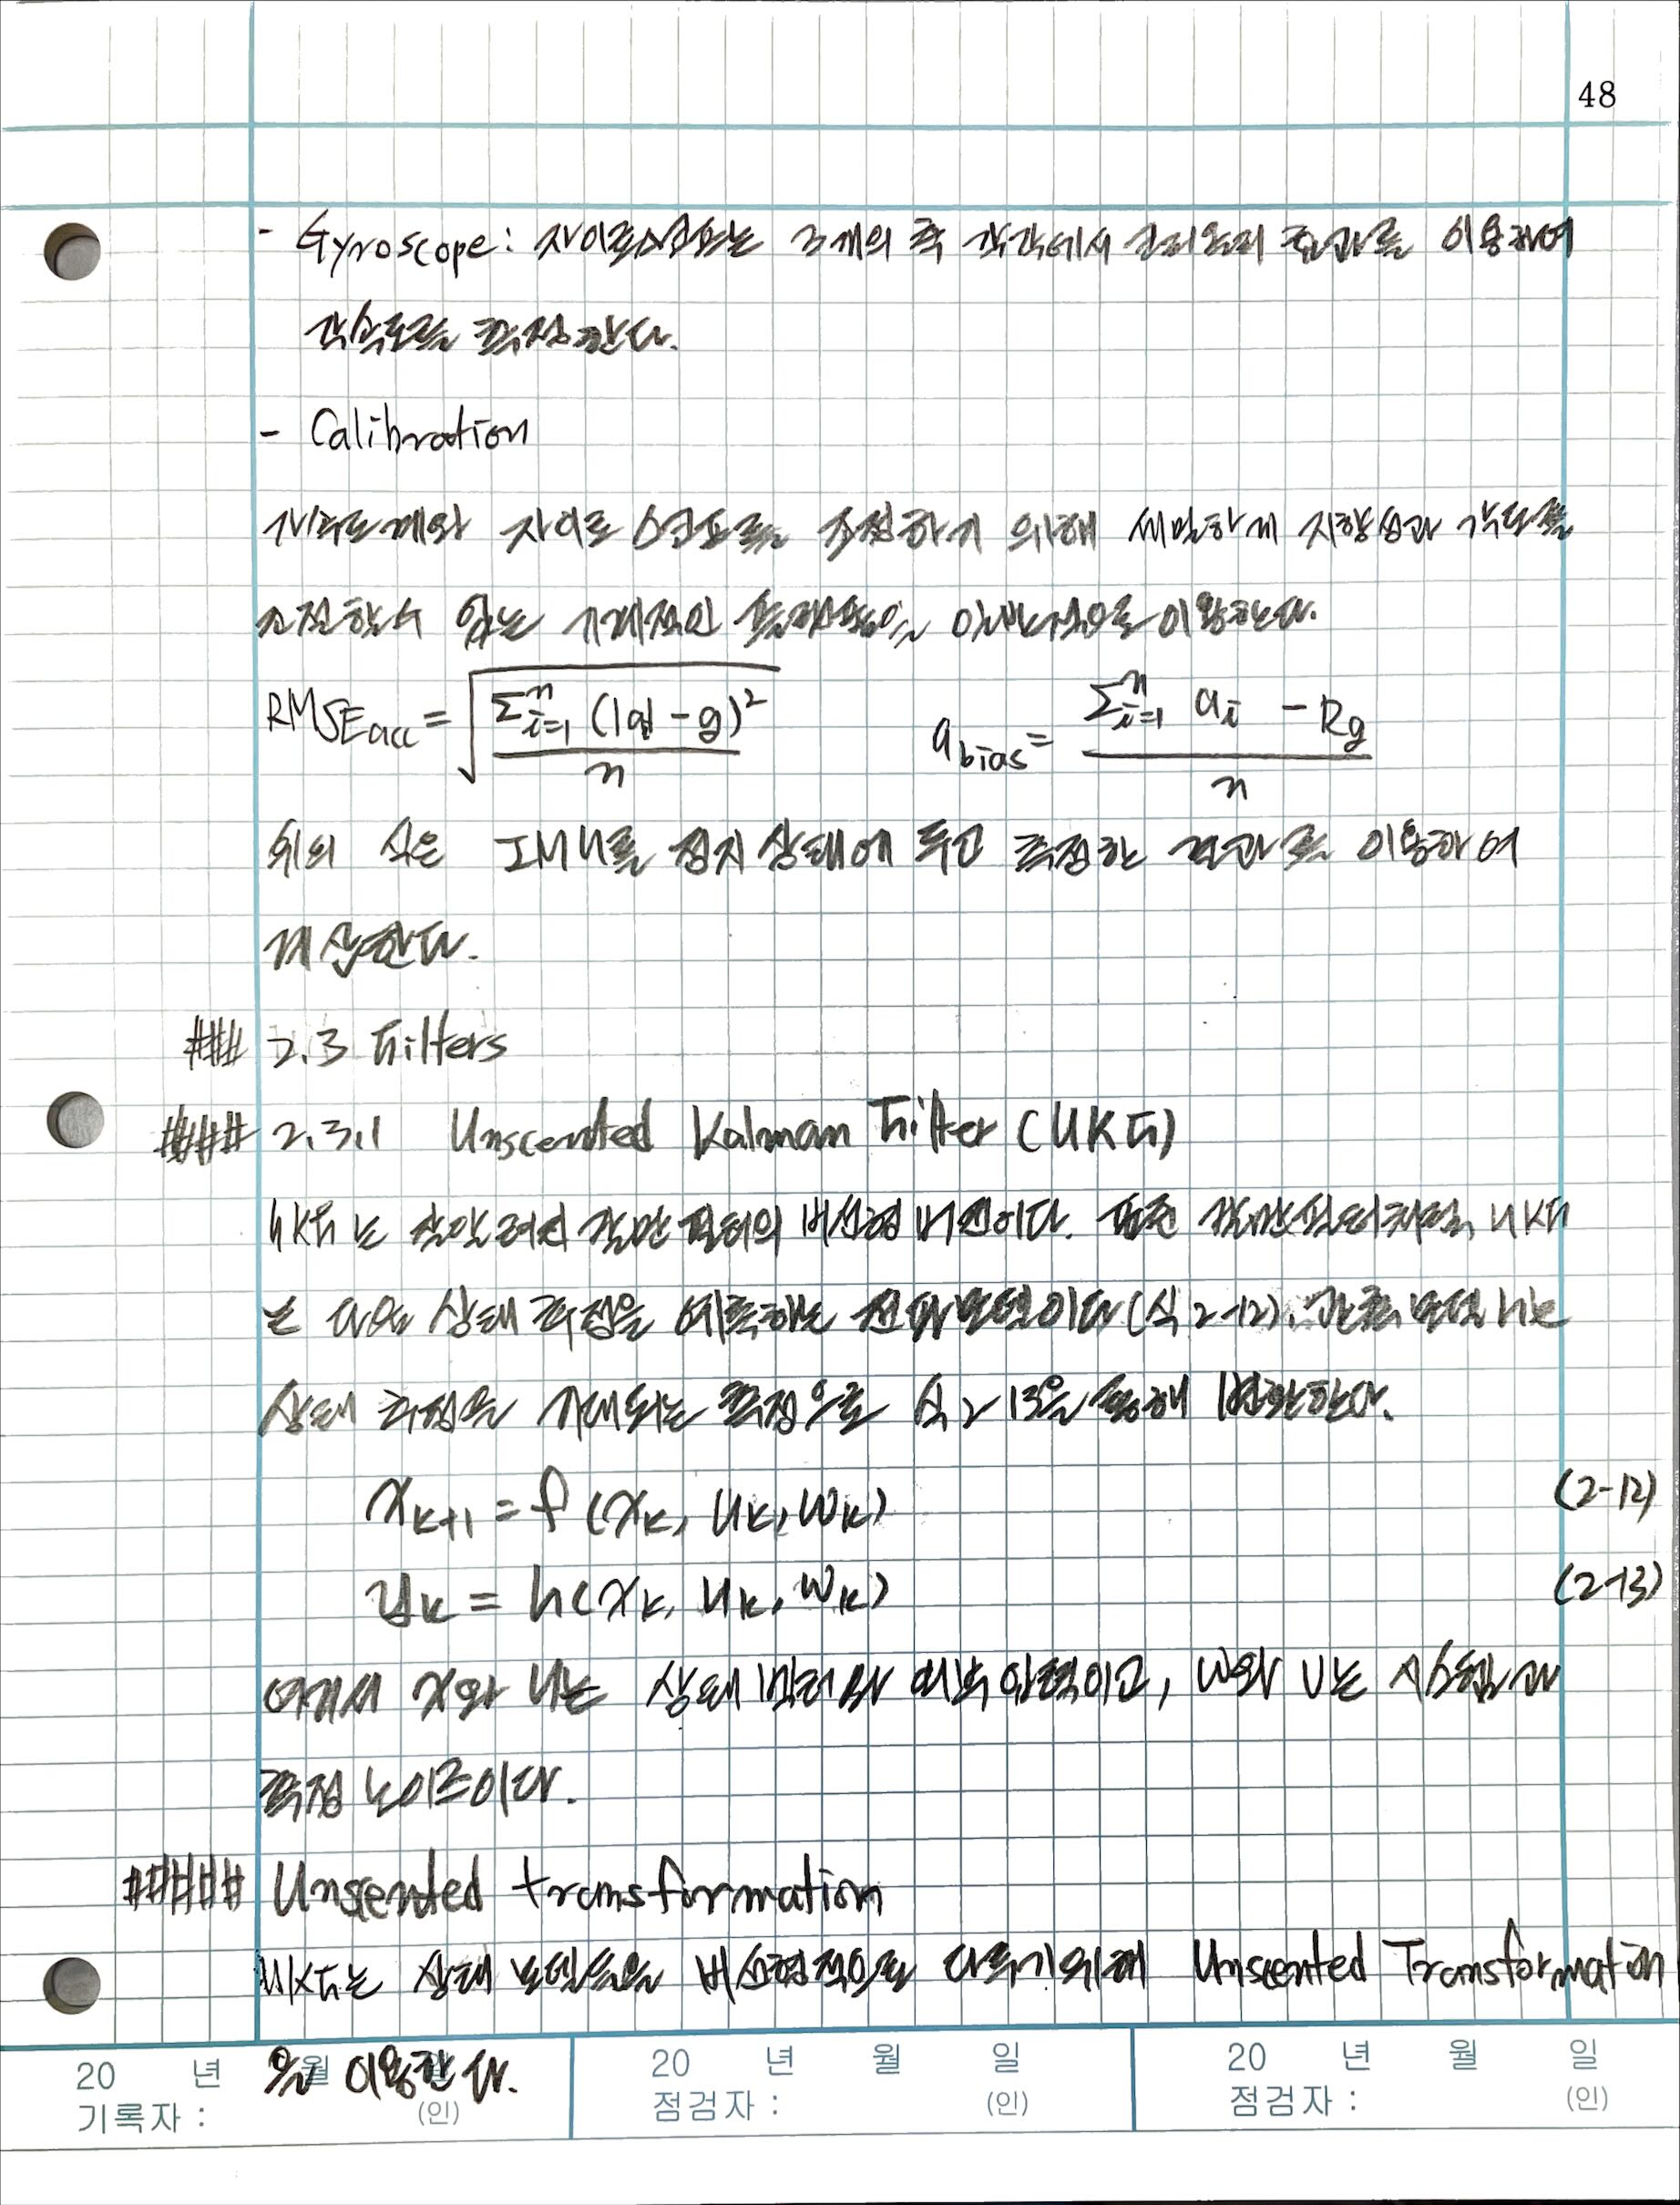 48
- Gyroscope: 자이로스코프는 3개의 축 각각에서 코리올리 효과를 이용하여
각속도를 측정한다.
- Calibration
가속도계와 자이로스코프를 조정하기 위해 세밀하게 지향성과 각도를
조절할수 있는 기계적인 플랫폼을 일반적으로 이용한다.
RMSE_acc = √(Σ_{i=1}^{n} (|a| - g)² / n)    a_bias = (Σ_{i=1}^{n} a_i - Rg) / n
위의 식은 IMU를 정지 상태에 두고 측정한 결과를 이용하여
계산한다.
### 2.3 Filters
#### 2.3.1 Unscented Kalman Filter (UKF)
UKF는 잘 알려진 칼만 필터의 비선형 버전이다. 표준 칼만 필터처럼, UKF
는 다음 상태 추정을 예측하는 전파 모델이다 (식 2-12). 관측 모델 h는
상태 추정을 기대되는 측정으로 식 2-13을 통해 변환한다.
x_{k+1} = f(x_k, u_k, w_k) (2-12)
y_k = h(x_k, u_k, w_k) (2-13)
여기서 x와 u는 상태 벡터와 입력이고, w와 v는 시스템과
측정 노이즈이다.
##### Unscented transformation
UKF는 상태 모델들을 비선형적으로 다루기위해 Unscented Transformation
을 이용한다.
20 년 월 20 년 월 일 20 년 월 일
기록자 : (인) 점검자 : (인) 점검자 : (인)